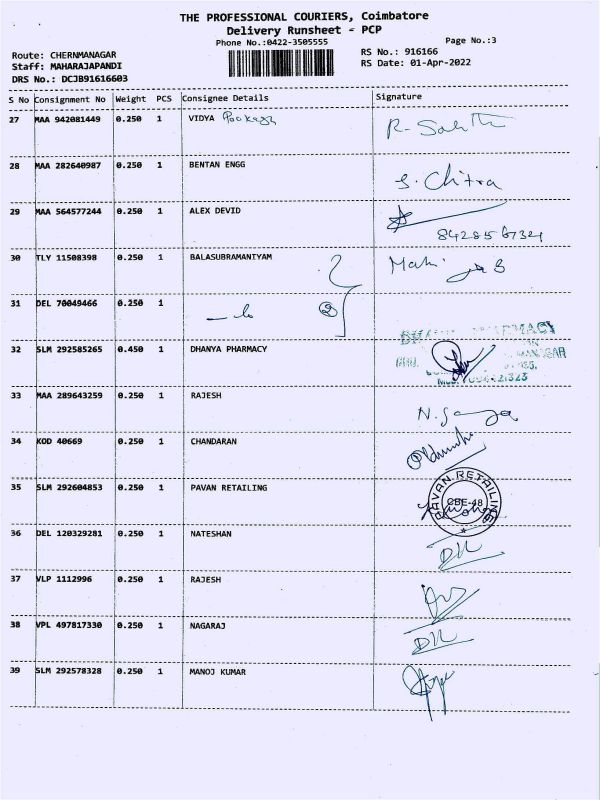 THE PROFESSIONAL COURIERS, Coimbatore
Delivery Runsheet - PCP
Phone No.:0422-3505555
Page No.:3
Route: CHERNMANAGAR
RS No.: 916166
Staff: MAHARAJAPANDI
RS Date: 01-Apr-2022
DRS No.: DCJB91616603
S No Consignment No Weight PCS Consignee Details Signature
27 MAA 942081449 0.250 1 VIDYA
28 MAA 282640987 0.250 1 BENTAN ENGG S. Chitra
29 MAA 564577244 0.250 1 ALEX DEVID
30 TLY 11508398 0.250 1 BALASUBRAMANIYAM
31 DEL 70049466 0.250 1
32 SLM 292585265 0.450 1 DHANYA PHARMACY
33 MAA 289643259 0.250 1 RAJESH
34 KOD 40669 0.250 1 CHANDARAN
35 SLM 292604853 0.250 1 PAVAN RETAILING PAVAN RETAILING CBE-48
36 DEL 120329281 0.250 1 NATESHAN
37 VLP 1112996 0.250 1 RAJESH
38 VPL 497817330 0.250 1 NAGARAJ
39 SLM 292578328 0.250 1 MANOJ KUMAR